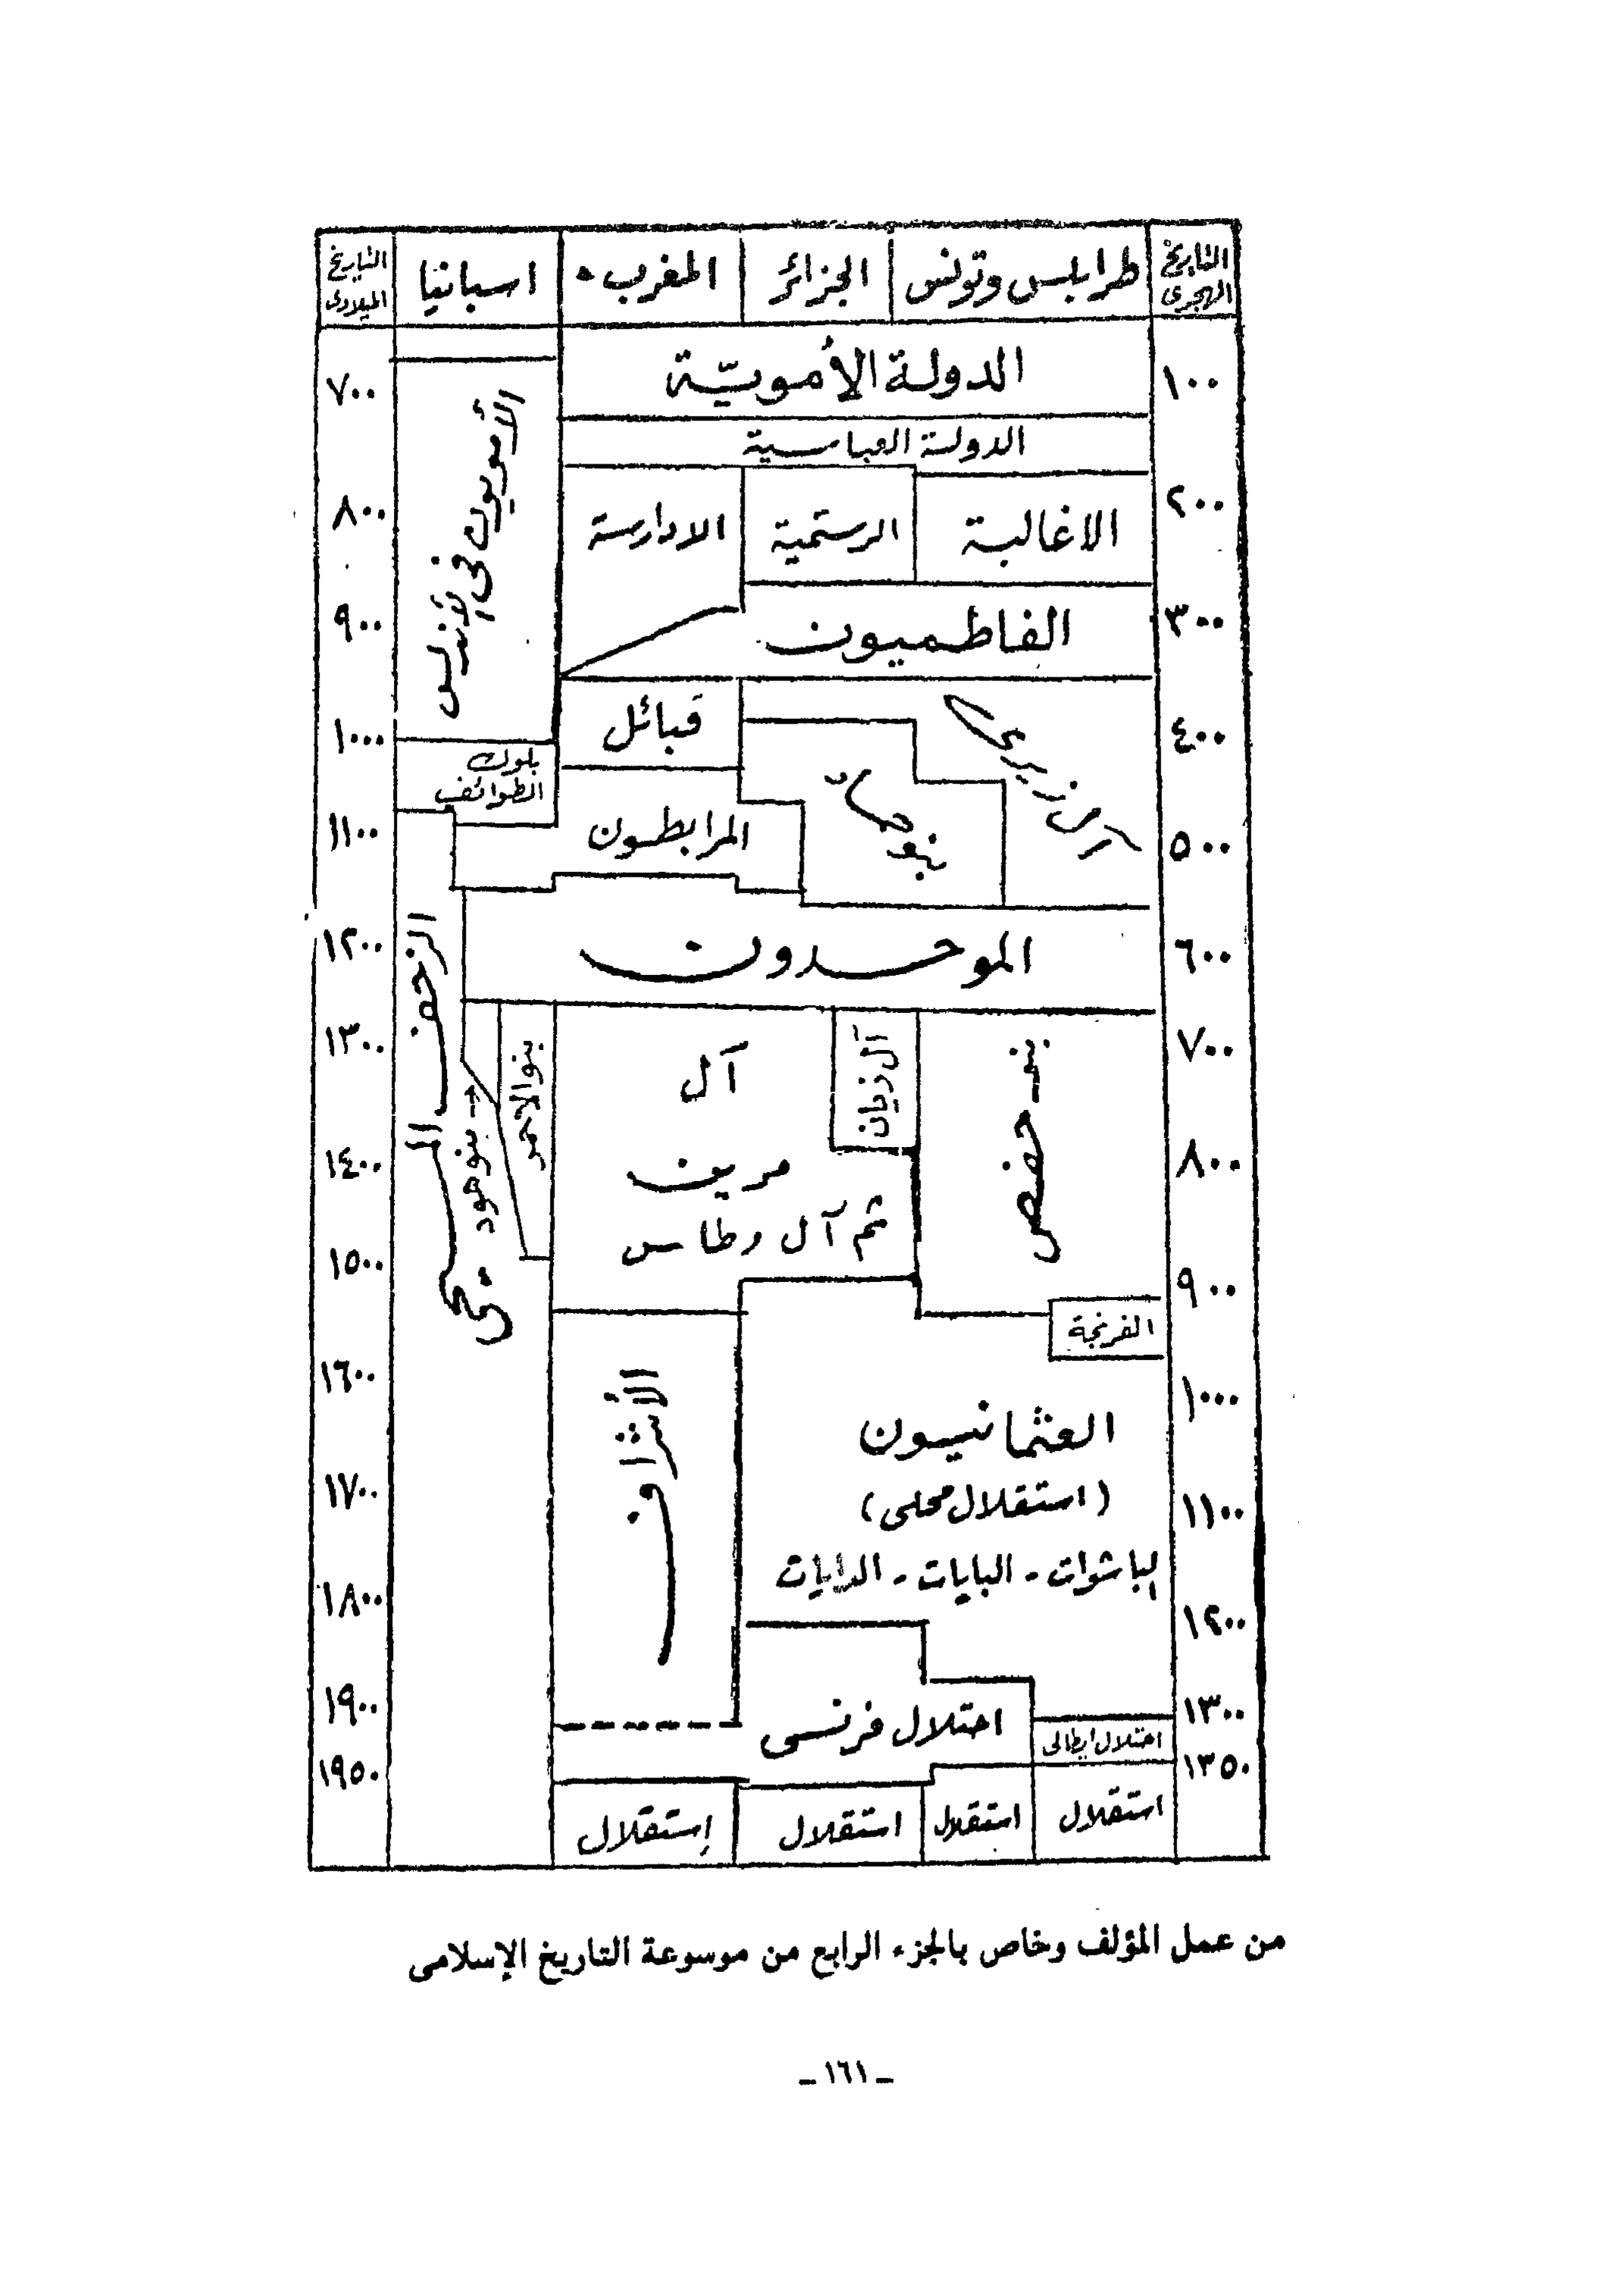 التاريخ الهجرى
طرابلس وتونس
الجزائر
المغرب
اسبانيا
التاريخ الميلادى
١٠٠
الدولة الأمويّة
٧٠٠
الدولة العباسية
الأمويون في الأندلس
٢٠٠
الاغالبة
الرستمية
الادارسة
٨٠٠
٣٠٠
الفاطميون
٩٠٠
٤٠٠
قبائل
١٠٠٠
ملوك
الطوائف
٥٠٠
بنو حماد
المرابطون
١١٠٠
٦٠٠
الموحدون
١٢٠٠
الزحف المسيحى
٧٠٠
بنو حفص
آل زيان
آل
مرين
ثم آل وطاس
بنو الاحمر
بنو هود
١٣٠٠
٨٠٠
١٤٠٠
٩٠٠
١٥٠٠
الفرنجة
١٠٠٠
العثمانيون
(استقلال محلى)
الباشوات - البايات - الدايات
الأشراف
١٦٠٠
١١٠٠
١٧٠٠
١٢٠٠
١٨٠٠
١٣٠٠
احتلال ايطالى
احتلال فرنسى
١٩٠٠
١٣٥٠
١٩٥٠
استقلال
استقلال
استقلال
إستقلال
من عمل المؤلف وخاص بالجزء الرابع من موسوعة التاريخ الإسلامى
ـ ١٦١ ـ